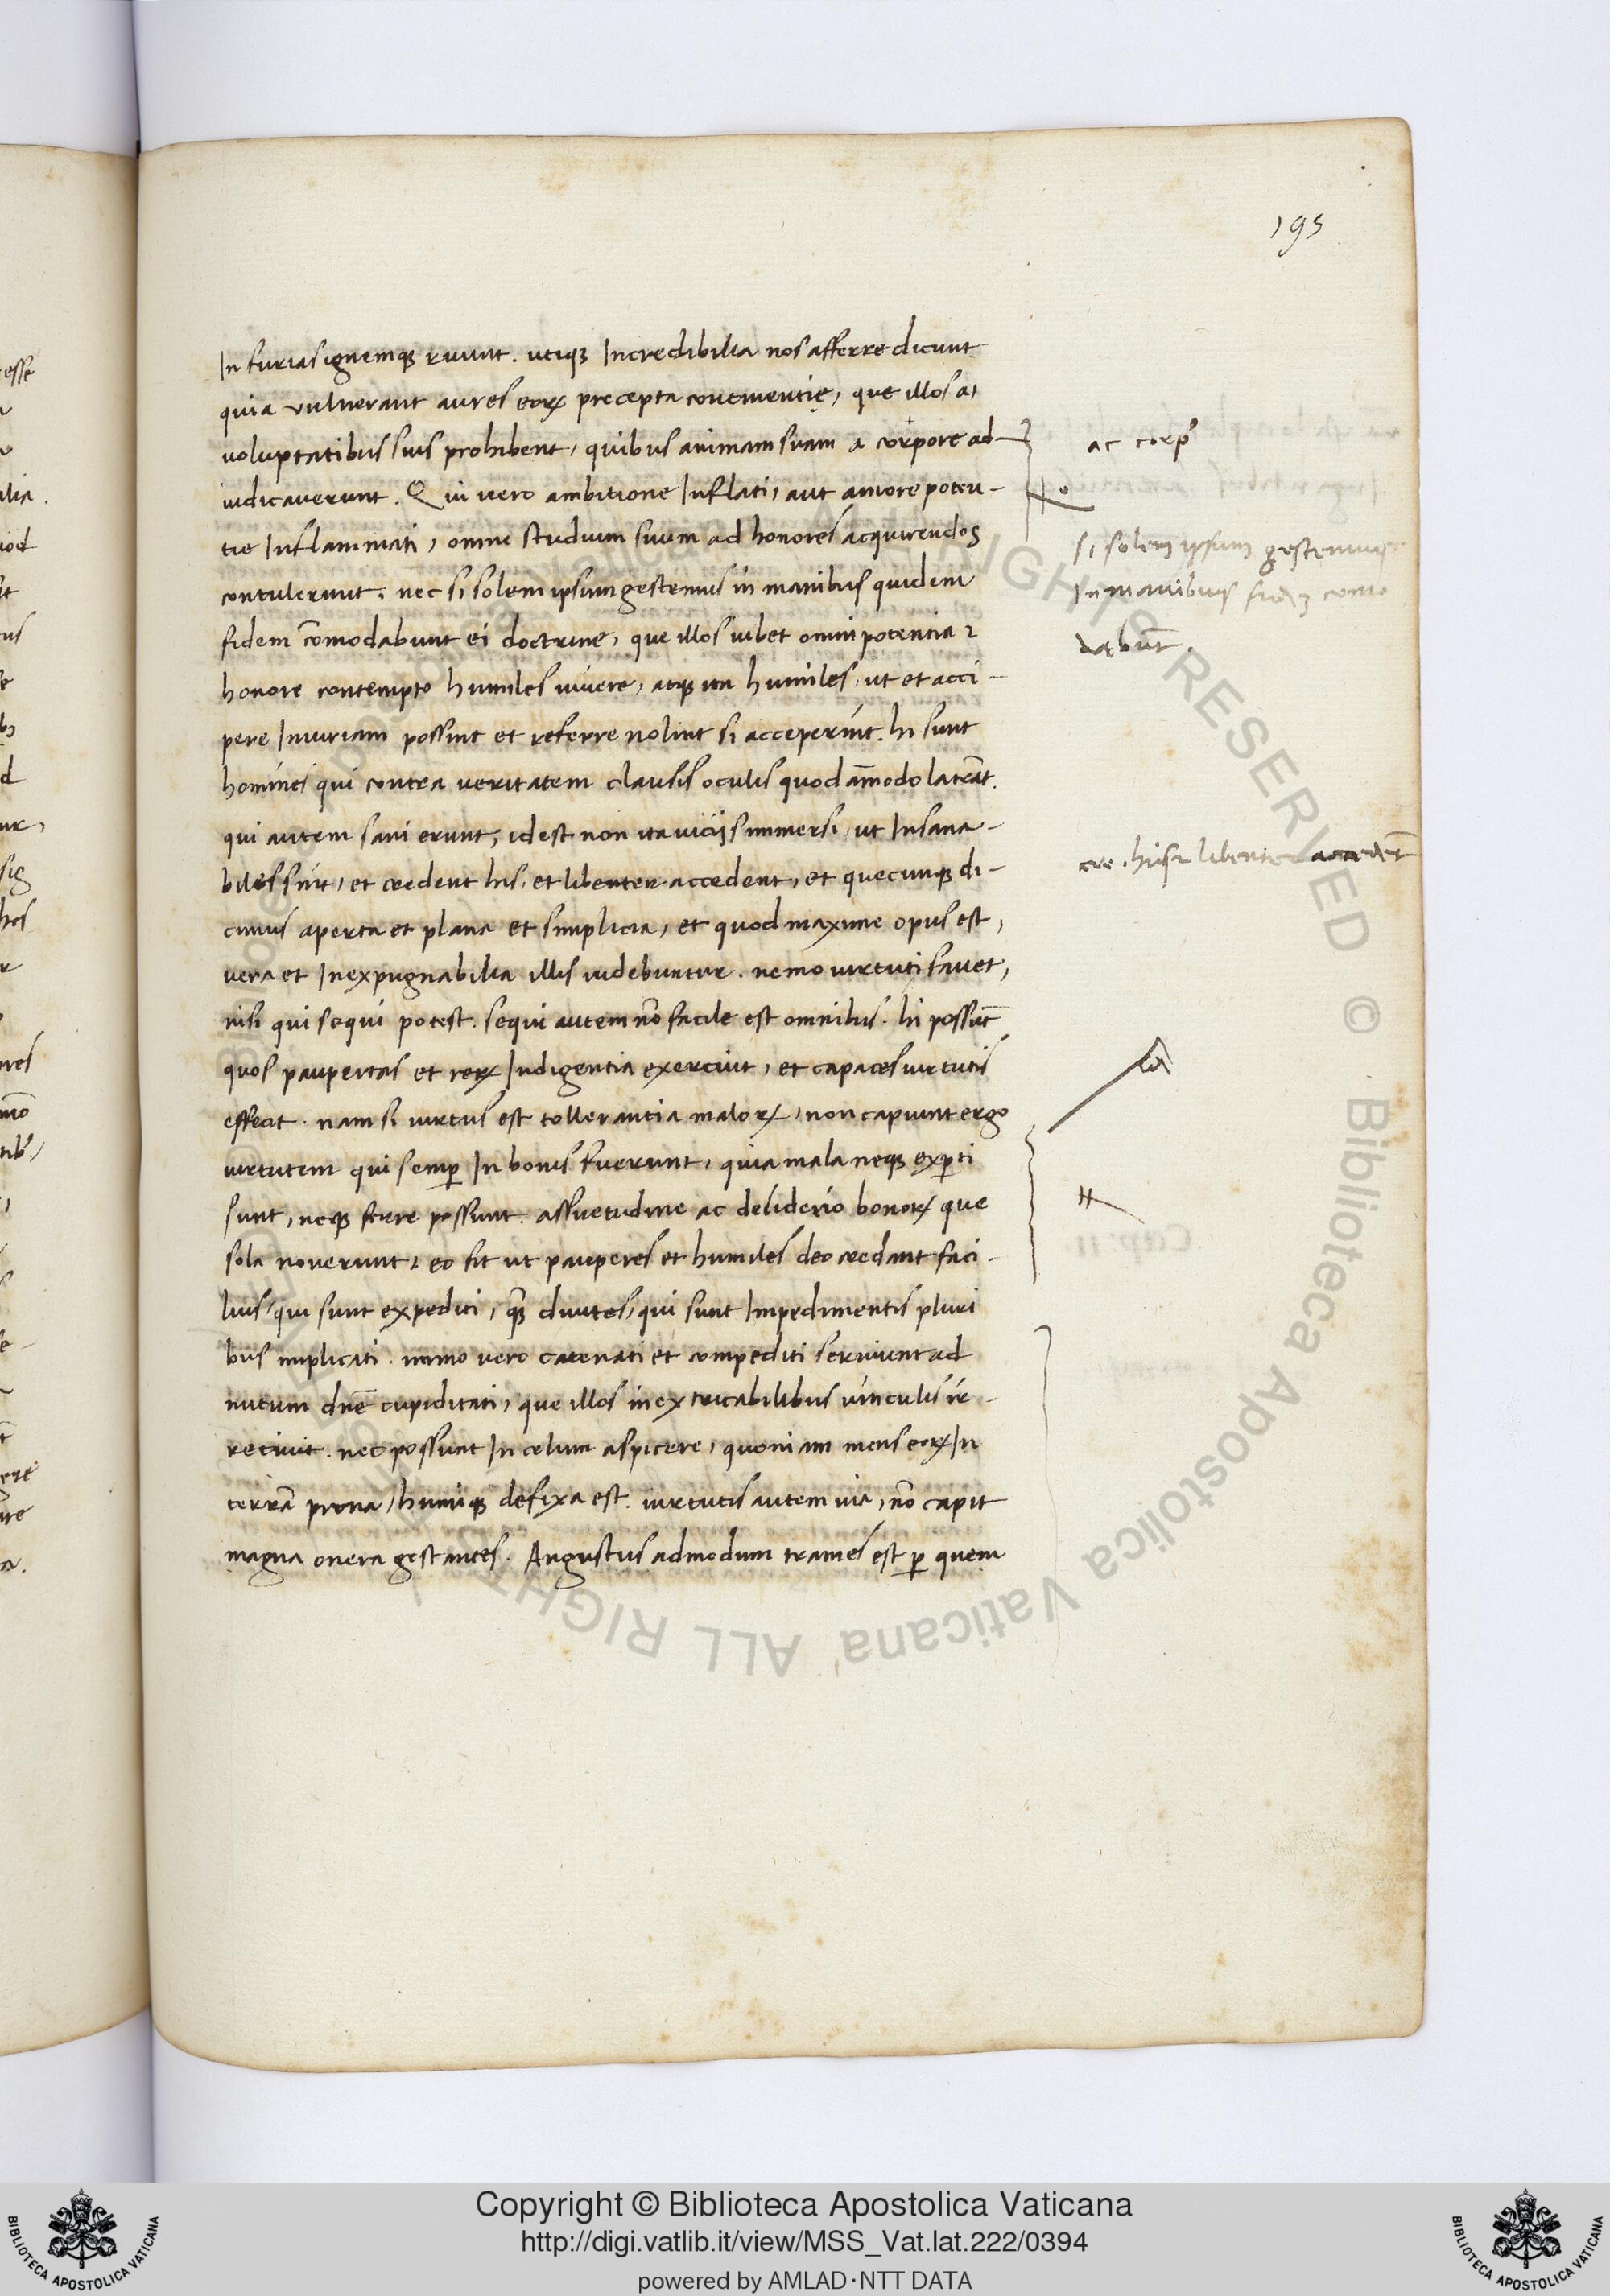 195
In furias ignemqꝫ ruunt. utiqꝫ Incredibilia nos afferre dicunt
quia vulnerant aures eoꝝ precepta continentię, que illos a,
voluptatibus suis prohibent, quibus animam suam a corpore ad-
iudicaverunt. Qui vero ambitione Inflati, aut amore poten-
tie Inflammati, omne studium suum ad honores acquirendos
contulerunt. nec si solem ipsum gestemus in manibus quidem
fidem com̄odabunt ei doctrine, que illos iubet omni potentia ⁊
honore contempto humiles vivere, atqꝫ ita humiles, ut et acci-
pere Iniuriam possint et referre nolint si acceperint. hi sunt
homines qui contra veritatem clausis oculis quodam̄modo latrāt.
qui autem sani erunt, id est non ita viciis immersi, ut Insana-
biles sint, et credent his, et libenter accedent, et quecunqꝫ di-
cimus aperta et plana et simplicia, et quod maxime opus est,
vera et Inexpugnabilia illis videbuntur. nemo virtuti favet,
nisi qui sequi potest. sequi autem nō facile est omnibus. hi possūt
quos paupertas et reꝝ Indigentia exercuit, et capaces virtutis
effecit. nam si virtus est tollerantia maloꝝ, non capiunt ergo
virtutem qui semꝑ In bonis fuerunt, quia mala neqꝫ exꝑti
sunt, neqꝫ ferre possunt. assuetudine ac desiderio bonoꝝ que
sola noverunt. eo fit ut pauperes et humiles deo credant faci-
lius, qui sunt expediti, qꝫ divites, qui sunt Impedimentis pluri
bus implicati. immo vero catenati et compediti serviunt ad
nutum dn̄e cupiditati, que illos inextricabilibus vinculis ir-
retivit. nec possunt In celum aspicere, quoniam mens eoꝝ In
terrā prona, humiqꝫ defixa est. virtutis autem via, nō capit
magna onera gestantes. Angustus admodum trames est ꝑ quem
ac corp̄
si solem ipsum gestemus
In manibus fidꝫ como
dabūt.
cre. hīs ⁊ libenter accedēt
Copyright © Biblioteca Apostolica Vaticana
http://digi.vatlib.it/view/MSS_Vat.lat.222/0394
powered by AMLAD·NTT DATA
BIBLIOTECA APOSTOLICA VATICANA
BIBLIOTECA APOSTOLICA VATICANA